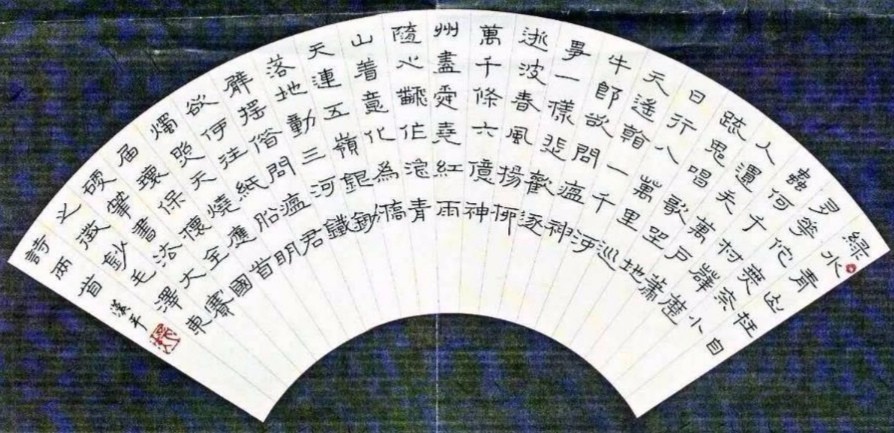 綠水青山枉自
多華佗無奈小
蟲何千村薜荔
人遺矢萬戶蕭
疏鬼唱歌坐地
日行八萬里巡
天遙看一千河
牛郎欲問瘟神
事一樣悲歡逐
逝波春風楊柳
萬千條六億神
州盡舜堯紅雨
隨心翻作浪青
山着意化為橋
天連五嶺銀鋤
落地動三河鐵
臂搖借問瘟君
欲伊往紙船明
燭照天燒應首
屆環保全國
硬筆書法大賽
之徵鈔毛澤東
詩兩首